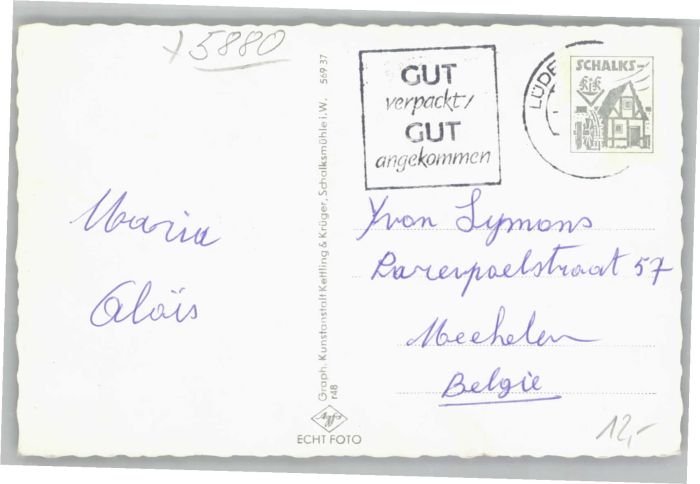 5880
GUT
verpackt/
GUT
angekommen
LÜDE
SCHALKS-
KfK
Maria
Aloïs
Graph. Kunstanstalt Kettling & Krüger, Schalksmühle i.W. 569 37
r48
Yvon Symons
57
Mechelen
Belgie
Agfa
ECHT FOTO
12,-